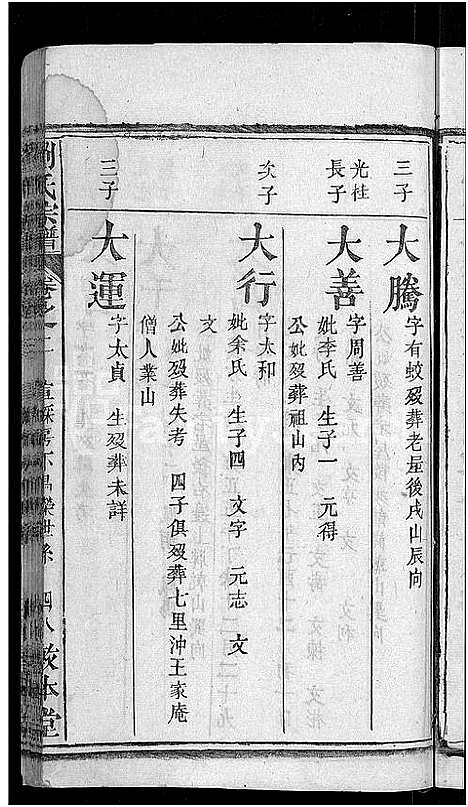 三子
大騰
字有蛟歿葬老屋後戌山辰向
光柱長子
大善
字周善
妣李氏　生子一　元得
公妣歿葬祖山內
次子
大行
字太和
妣余氏　生子四　文字　元志　文
文
公妣歿葬失考　四子俱歿葬七里沖王家庵
僧人業山
三子
大運
字太貞　生歿葬未詳
劉氏宗譜　卷之二　世系